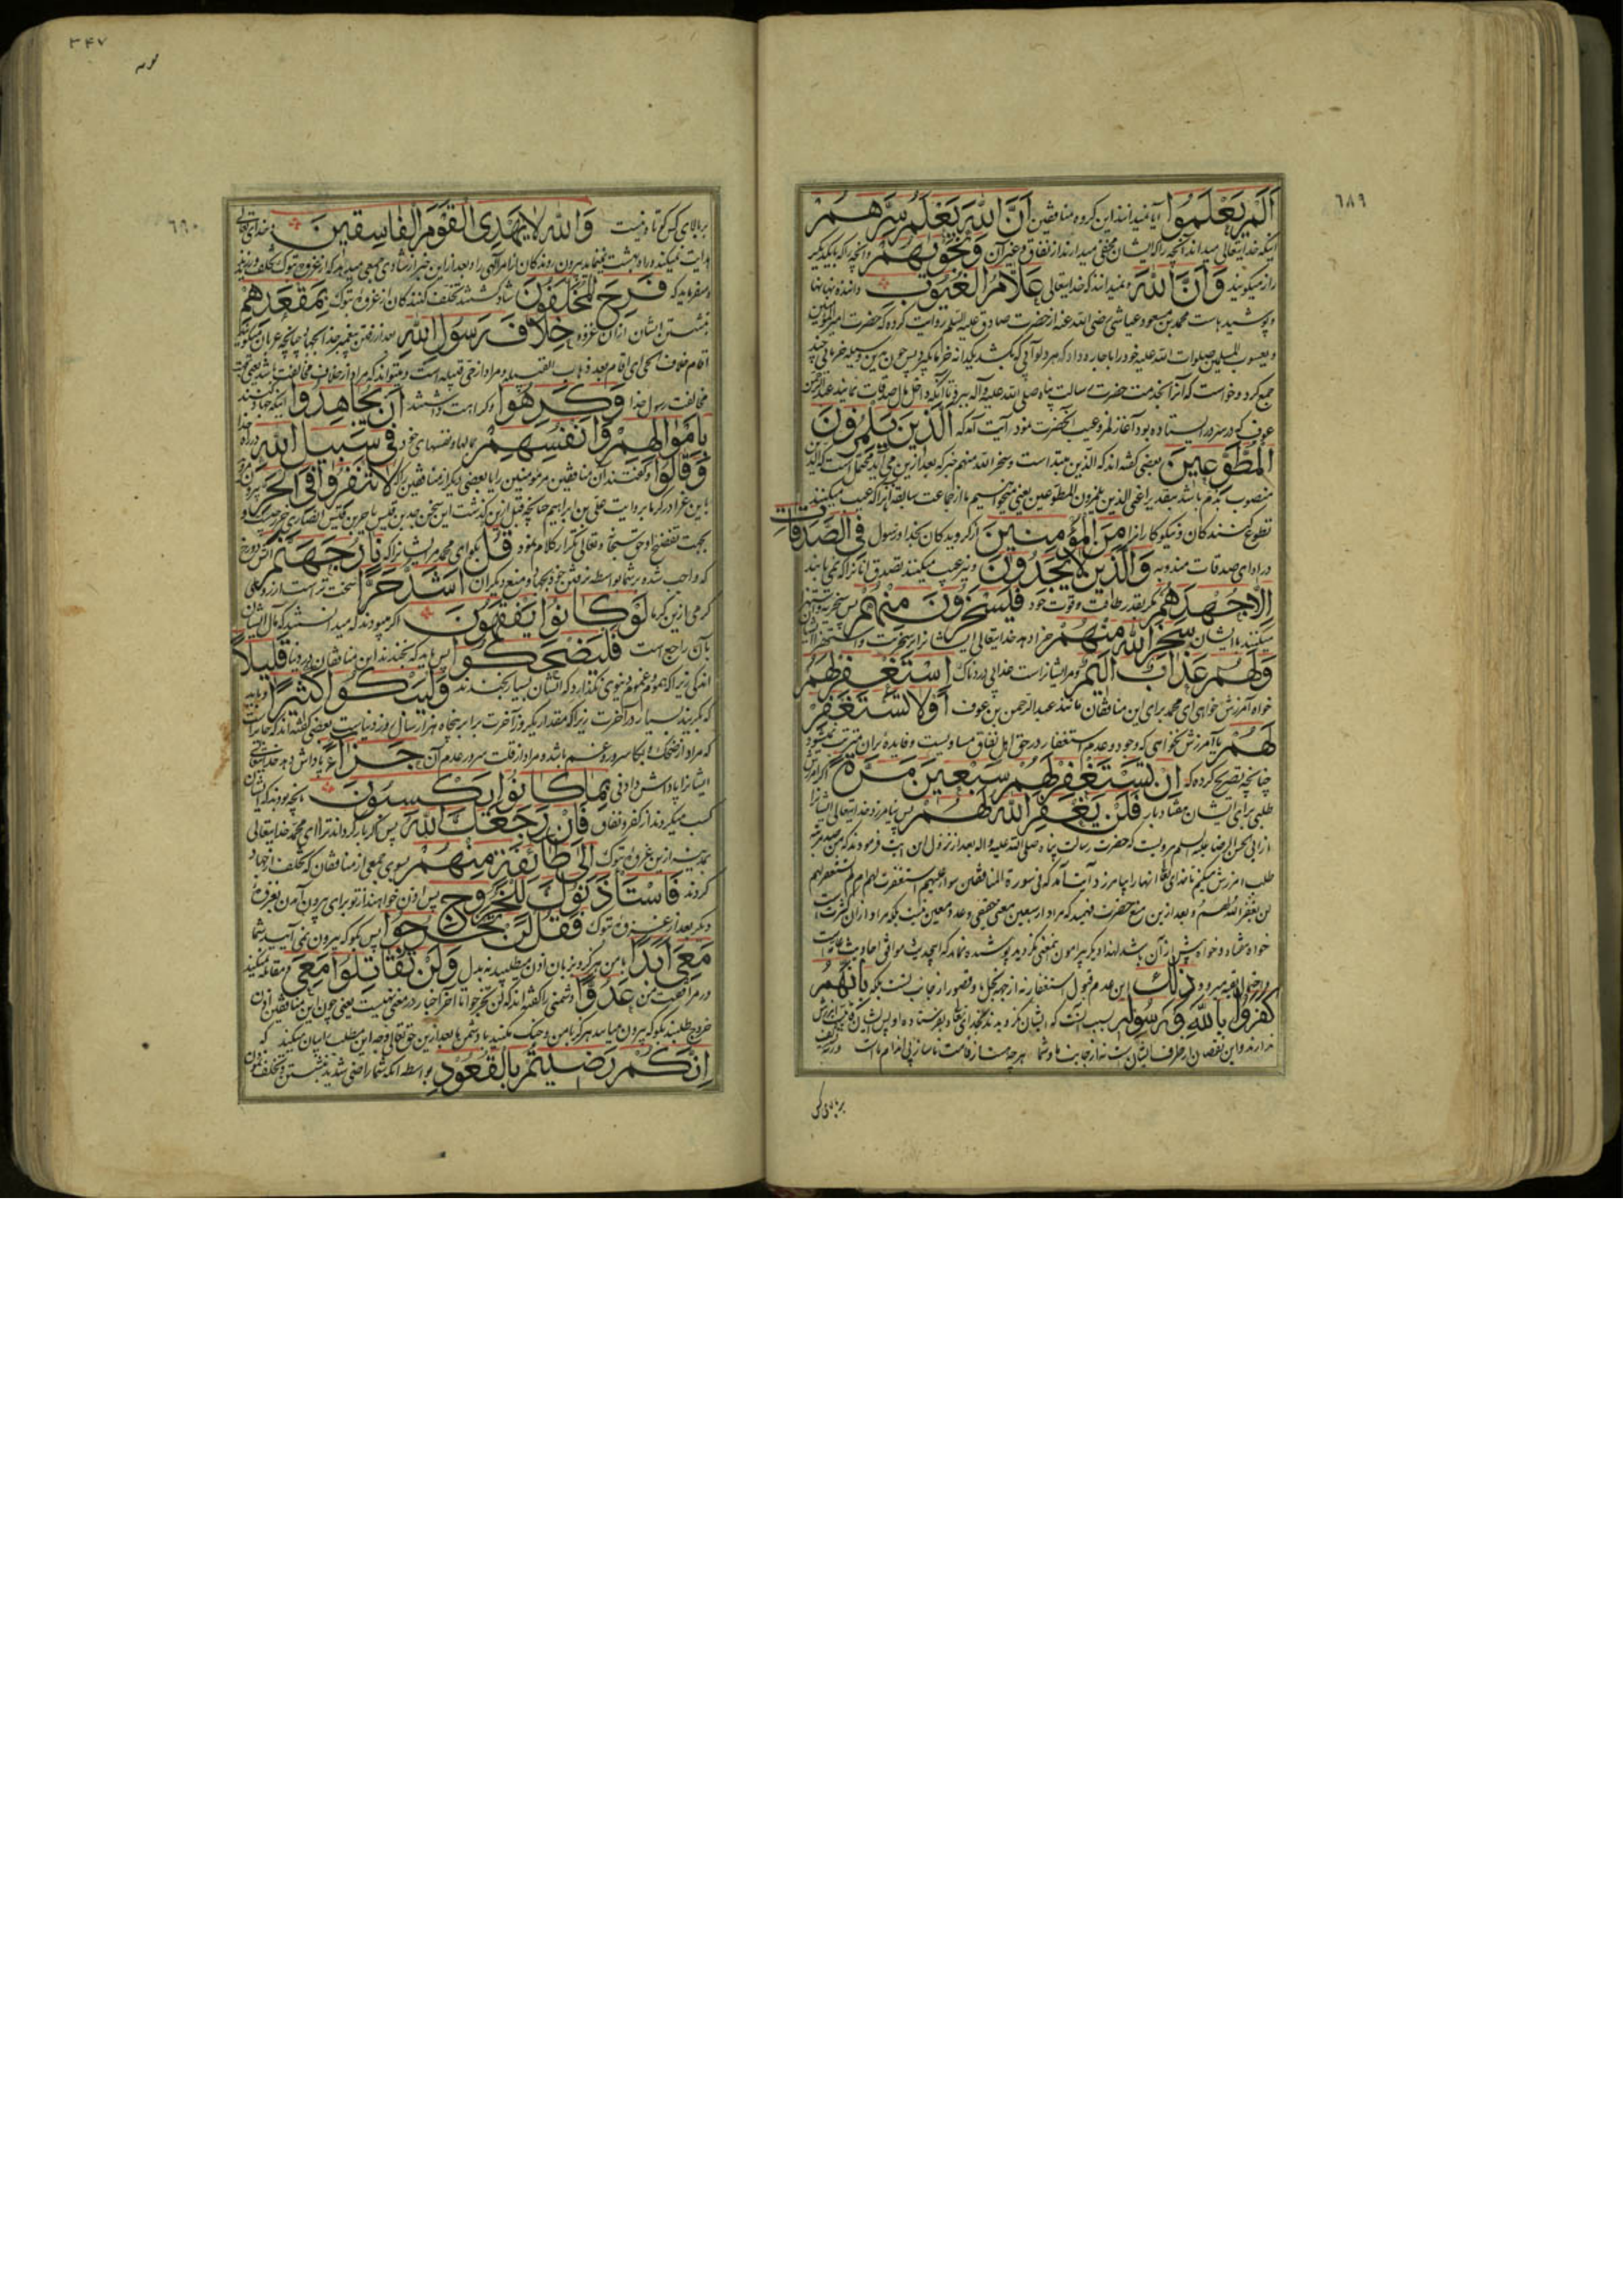 ٦٨٩
اَلَمْ يَعْلَمُوا آيا نميدانند اين كروه منافقين اَنَّ اللّٰهَ يَعْلَمُ سِرَّهُمْ
اينكه خدايتعالى ميداند آنچه را كه ايشان مخفى ميدارند از نفاق و غير آن وَنَجْوٰيهُمْ وانچه را كه با يكديكر
راز ميكويند وَاَنَّ اللّٰهَ و نميدانند كه خدايتعالى عَلَّامُ الْغُيُوبِ داننده نهانها
و پوشيدهاست محمد بن مسعود عياشى رضى الله عنه از حضرت صادق عليه السلم روايت كرده كه حضرت امير المؤمنين
و يعسوب المسلمين صلوات الله عليه خود را باجاره داد كه هر دلو آبى كه بكشد يكدانه خرما بكيرد پس چون بدين وسيله خرمايى چند
جمع كرد و خواست كه آنرا بخدمت حضرت رسالت پناه صلى الله عليه وآله ببرد تا آنكه داخل مال صدقات نمايند عبد الرحمن
عوف كه در سر در ايستاده بود آغاز لمز و عيب آنحضرت نمود آيت آمد كه اَلَّذٖينَ يَلْمِزُونَ
الْمُطَّوِّعٖينَ بعضى كفته‌اند كه الذين مبتدا است و سخر الله منهم خبر كه بعد ازين مى آيد محتمل است كه الذين
منصوب بذم باشد بتقدير اعنى الذين يلمزون المطوعين يعنى ميخواهيم ما از جماعت سابقه آنرا كه عيب ميكنند
تطوع كنندكان و نيكوكارانرا مِنَ الْمُؤْمِنٖينَ از كرويدكان بخدا و رسول فِى الصَّدَقَاتِ
در اداى صدقات مندوبه وَالَّذٖينَ لَا يَجِدُونَ و نيز عيب ميكنند تصدق آنانرا كه نمى يابند
اِلَّا جُهْدَهُمْ مكر بقدر طاقت و قوت خود فَيَسْخَرُونَ مِنْهُمْ پس سخريه
ميكنند بايشان سَخِرَ اللّٰهُ مِنْهُمْ جزا دهد خدايتعالى ايشانرا بر سخريت و استهزا
وَلَهُمْ عَذَابٌ اَلٖيمٌ و مر ايشانراست عذابى دردناك اِسْتَغْفِرْ لَهُمْ
خواه آمرزش خواهى اى محمد براى اين منافقان مانند عبد الرحمن بن عوف اَوْ لَا تَسْتَغْفِرْ
لَهُمْ يا آمرزش نخواهى كه وجود و عدم استغفار در حق اهل نفاق مساويست و فايدۀ بران مترتب نميشود
چنانچه تصريح كرده كه اِنْ تَسْتَغْفِرْ لَهُمْ سَبْعٖينَ مَرَّةً اكر آمرزش
طلبى براى ايشان هفتاد بار فَلَنْ يَغْفِرَ اللّٰهُ لَهُمْ پس نيامرزد خدايتعالى ايشانرا
از ابى الحسن الرضا عليه السلم مرويست كه حضرت رسالت پناه صلى الله عليه و اله بعد از نزول اين ايت فرمودند كه من صد مرتبه
طلب امرزش ميكنم تا خداى تعالى انها را بيامرزد آيت آمد كه فى سورة المنافقين سواء عليهم استغفرت لهم ام لم تستغفر لهم
لن يغفر الله لهم و بعد ازين منع حضرت فهميد كه مراد از سبعين معنى حقيقى و عدد معين نيست بلكه مراد از ان كثرت است
خواه هفتاد و خواه بيش از آن باشد لهذا ديكر پيرامون بمعنى نكرديد پوشيده نماند كه اينحديث موافق احاديث
ذٰلِكَ اين عدم قبول استغفار نه از جهة بخل ما و قصور از جانب تست بلكه بِاَنَّهُمْ
كَفَرُوا بِاللّٰهِ وَرَسُولِهٖ بسبب آنست كه ايشان نكرويدند بخداى تعالى و بفرستاده او پس ايشان قابليت امرزش
ندارند و اين نقصان از طرف ايشانست نه از جانب ما و شما هر چه هست از قامت ناساز بى اندام ماست ورنه تشريف
بر بالاى كس
٣٤٧
٦٩٠
بر بالاى كس كوتاه نيست وَاللّٰهُ لَا يَهْدِى الْقَوْمَ الْفَاسِقٖينَ و خداى تعالى
هدايت نميكند و راه بهشت نمينمايد بيرون روندكان از امر الهى را و بعد از اين خبر از شادى جمعى ميدهد كه از غزوه تبوك تخلف ورزيدند
و ميفرمايد كه فَرِحَ الْمُخَلَّفُونَ شاد كشتند تخلف كنندكان از غزوۀ تبوك بِمَقْعَدِهِمْ
بنشستن ايشان از ان غزوه خِلَافَ رَسُولِ اللّٰهِ بعد از رفتن پيغمبر خدا بجهاد چنانچه عربان ميكويند
اقام خلاف الحى اى اقام بعد ذهاب القبيله و مراد از حى قبيله است و ميتواند كه مراد از خلاف مخالفت باشد يعنى بجهت
مخالفت رسول خدا وَكَرِهُوا و كراهت داشتند اَنْ يُجَاهِدُوا اينكه جهاد كنند
بِاَمْوَالِهِمْ وَاَنْفُسِهِمْ بمالها و نفسهاى خود فٖى سَبٖيلِ اللّٰهِ در راه خدا
وَقَالُوا و كفتند آن منافقين مر مؤمنين را يا بعضى ديكر از منافقين را كه لَا تَنْفِرُوا فِى الْحَرِّ بيرون مرويد
باين غزا در كرما بروايت على بن ابراهيم چنانچه قبل ازين كذشت اين سخن جد بن قيس با حر بن قيس انصارى
بجهت تفضيح او حق سبحانه و تعالى تكرار كلام نمود قُلْ بكو اى محمد مر ايشانرا كه نَارُ جَهَنَّمَ آتش دوزخ
كه واجب شده بر شما بواسطه نرفتن خود بجهاد و منع ديكران اَشَدُّ حَرًّا سخت تر است از روى
كرمى ازين كرما لَوْ كَانُوا يَفْقَهُونَ اكر ميبودند كه ميدانستند كه مآل ايشان
بآن راجع است فَلْيَضْحَكُوا پس بايد كه بخندند اين منافقان در دنيا قَلٖيلًا
اندكى زيرا كه هموم و غموم دنيوى نكذارد كه انسان بسيار بخندد وَلْيَبْكُوا كَثٖيرًا و بايد
كه بكريند بسيار در آخرت زيرا كه مقدار يكروز آخرت برابر پنجاه هزار سال روز دنياست بعضى كفته‌اند كه جايز است
كه مراد از ضحك و بكا سرور و غم باشد و مراد از قلت سرور عدم آن جَزَاءً پاداش دهد خدايتعالى
ايشانرا پاداش دادنى بِمَا كَانُوا يَكْسِبُونَ بانچه بودند كه ايشان
كسب ميكردند از كفر و نفاق فَاِنْ رَجَعَكَ اللّٰهُ پس اكر باز كرداند ترا اى محمد خدايتعالى
بمدينه ازين غزوۀ تبوك اِلٰى طَائِفَةٍ مِنْهُمْ بسوى جمعى از منافقان كه تخلف از جهاد
كردند فَاسْتَاْذَنُوكَ لِلْخُرُوجِ پس اذن خواهند از تو براى بيرون آمدن بغزوۀ
ديكر بعد از غزوۀ تبوك فَقُلْ لَنْ تَخْرُجُوا پس بكو كه بيرون نمى آييد شما
مَعِىَ اَبَدًا با من هركز نه بزبان اذن ميطلبيد نه بدل وَلَنْ تُقَاتِلُوا مَعِىَ و مقاتله نميكنيد
در مرافقت من عَدُوًّا دشمنى را كفته‌اند كه لن تخرجوا تا اخر اخبار در معنى نهيست يعنى چون اين منافقين اذن
خروج طلبند بكو كه بيرون ميايند هركز با من و جنك مكنيد با دشمن ما بعد ازين حق تعالى وجه اين مطلب را بيان ميكند كه
اِنَّكُمْ رَضٖيتُمْ بِالْقُعُودِ بواسطه آنكه شما راضى شديد بنشستن و تخلف نمودن